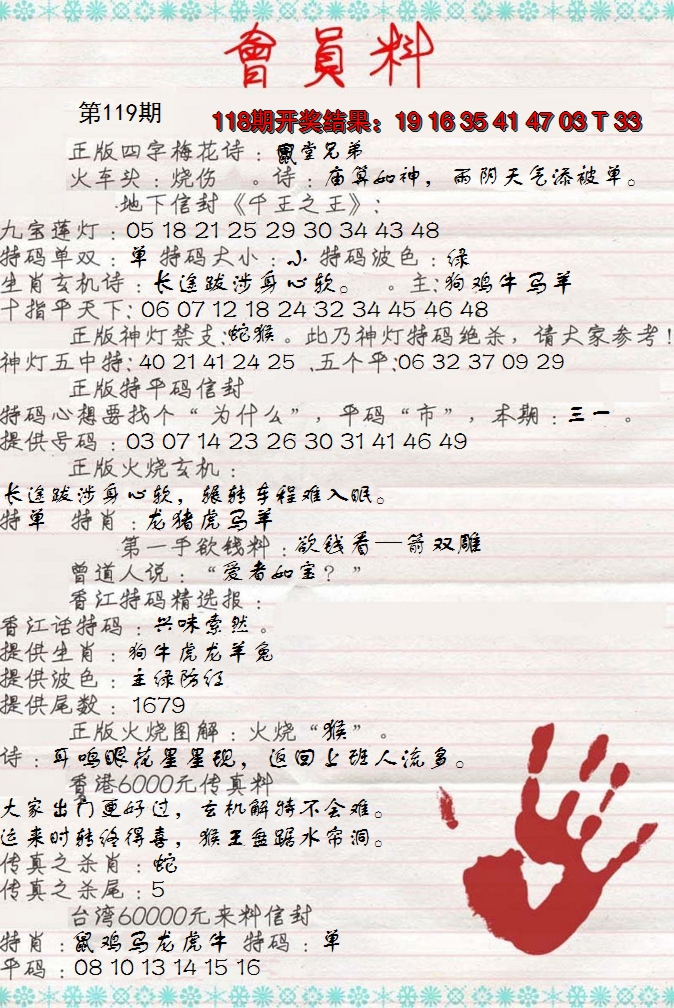 會員料
第119期
118期开奖结果：19 16 35 41 47 03 T 33
正版四字梅花诗：鼠堂兄弟
火车头：烧伤 。诗：庙算如神，雨阴天气添被单。
地下信封《千王之王》：
九宝莲灯：05 18 21 25 29 30 34 43 48
特码单双：单 特码大小：小 特码波色：绿
生肖玄机诗：长途跋涉身心软。 。主：狗鸡牛马羊
十指平天下：06 07 12 18 24 32 34 45 46 48
正版神灯禁支：蛇猴。此乃神灯特码绝杀，请大家参考！
神灯五中特：40 21 41 24 25 、五个平：06 32 37 09 29
正版特平码信封
特码心想要找个“为什么”，平码“市”，本期：三一 。
提供号码：03 07 14 23 26 30 31 41 46 49
正版火烧玄机：
长途跋涉身心软，辗转车程难入眠。
特单 特肖：龙猪虎马羊
第一手欲钱料：欲钱看一箭双雕
曾道人说：“爱者如宝？”
香江特码精选报：
香江话特码：兴味索然。
提供生肖：狗牛虎龙羊兔
提供波色：主绿防红
提供尾数：1679
正版火烧图解：火烧“猴”。
诗：耳鸣眼花星星现，返回上班人流多。
香港6000元传真料
大家出门更好过，玄机解特不会难。
运来时转终得喜，猴王盘踞水帘洞。
传真之杀肖：蛇
传真之杀尾：5
台湾60000元来料信封
特肖：鼠鸡马龙虎牛 特码：单
平码：08 10 13 14 15 16